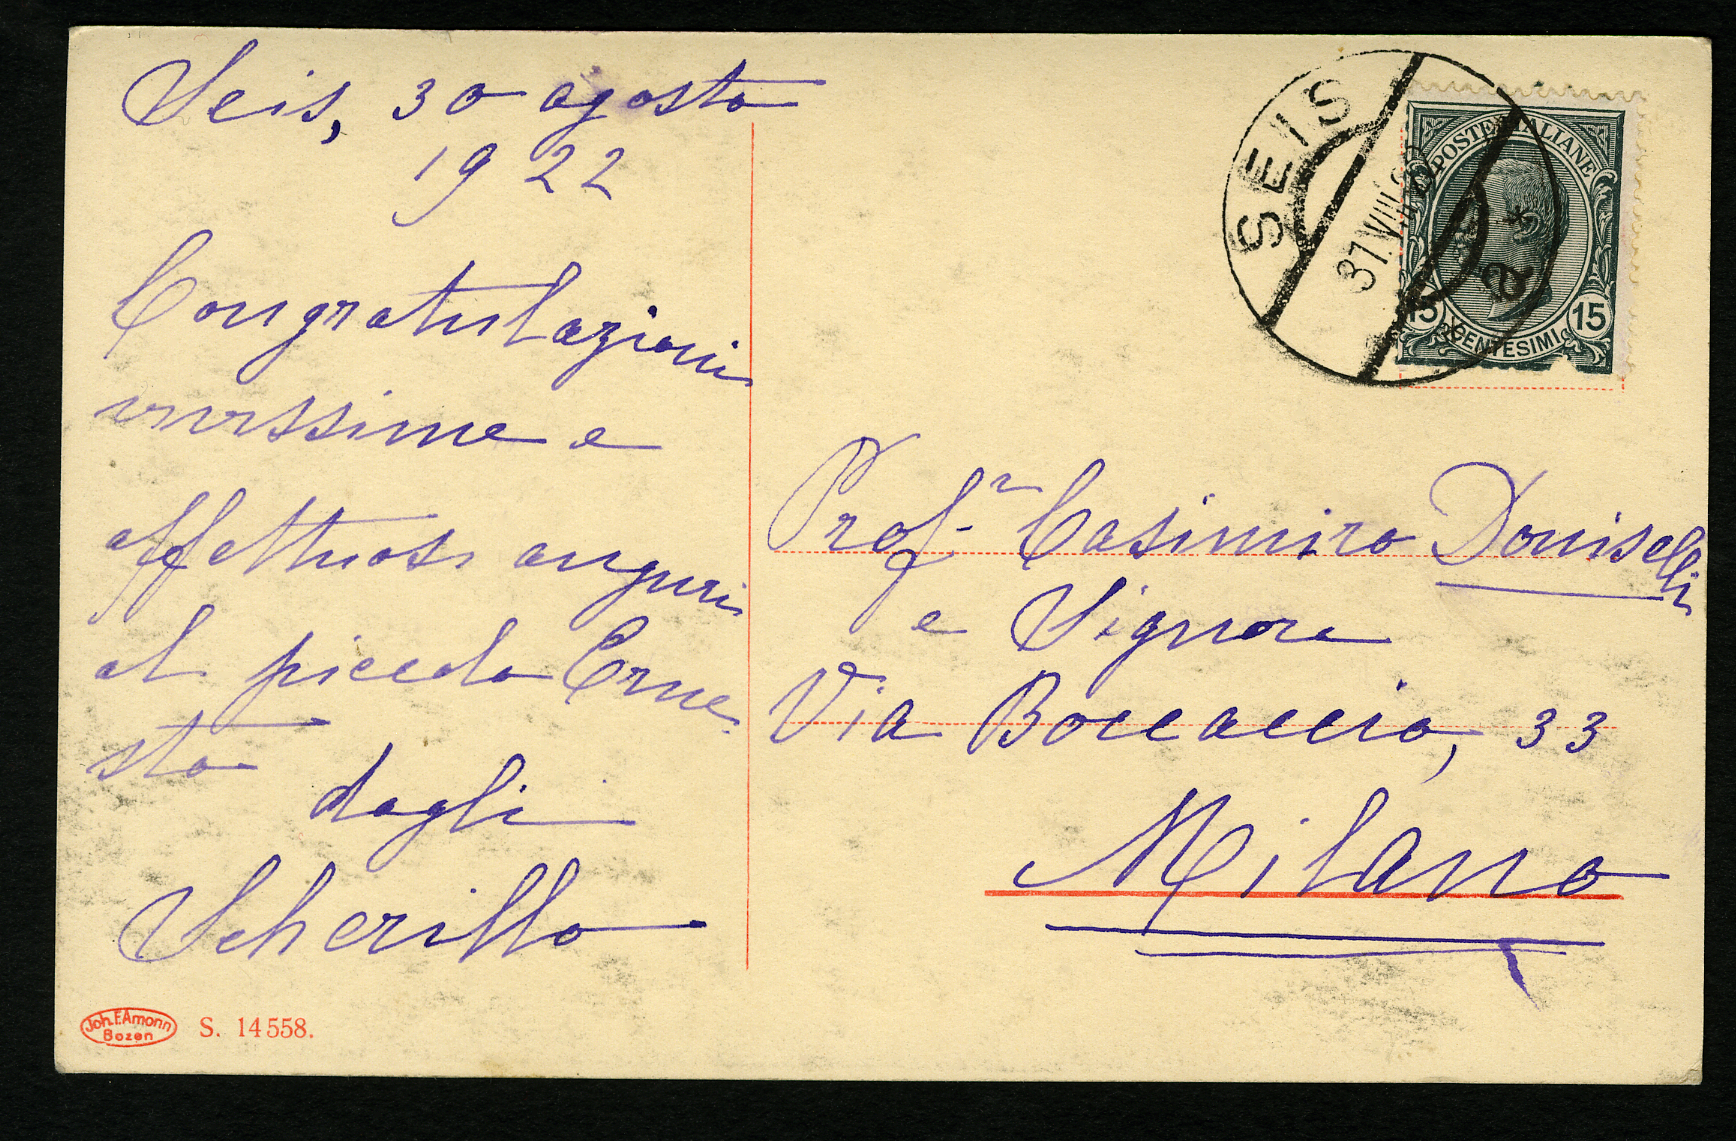 Seis, 30 agosto
1922
Congratulazioni
vivissime e
affettuosi auguri
al piccolo Erne
sto
dagli
Scherillo
Joh. F. Amonn
Bozen
S. 14558.
SEIS
31.VIII
a *
POSTE ITALIANE
15 15
CENTESIMI
Prof.r Casimiro Doniselli
e Signora
Via Boccaccio, 33
Milano